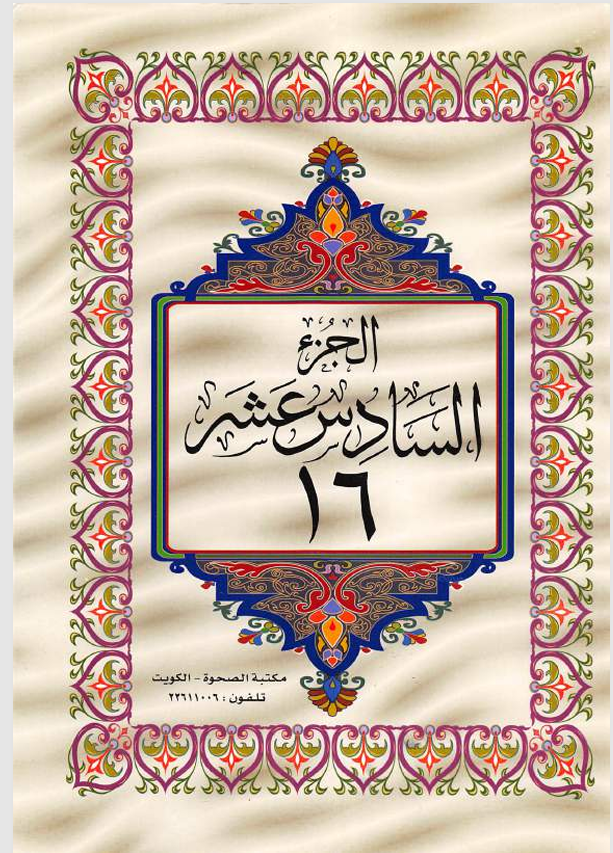 الجُزء
السَّادِس عَشَر
١٦
مكتبة الصحوة - الكويت
تلفون : ٢٢٦١١٠٠٦